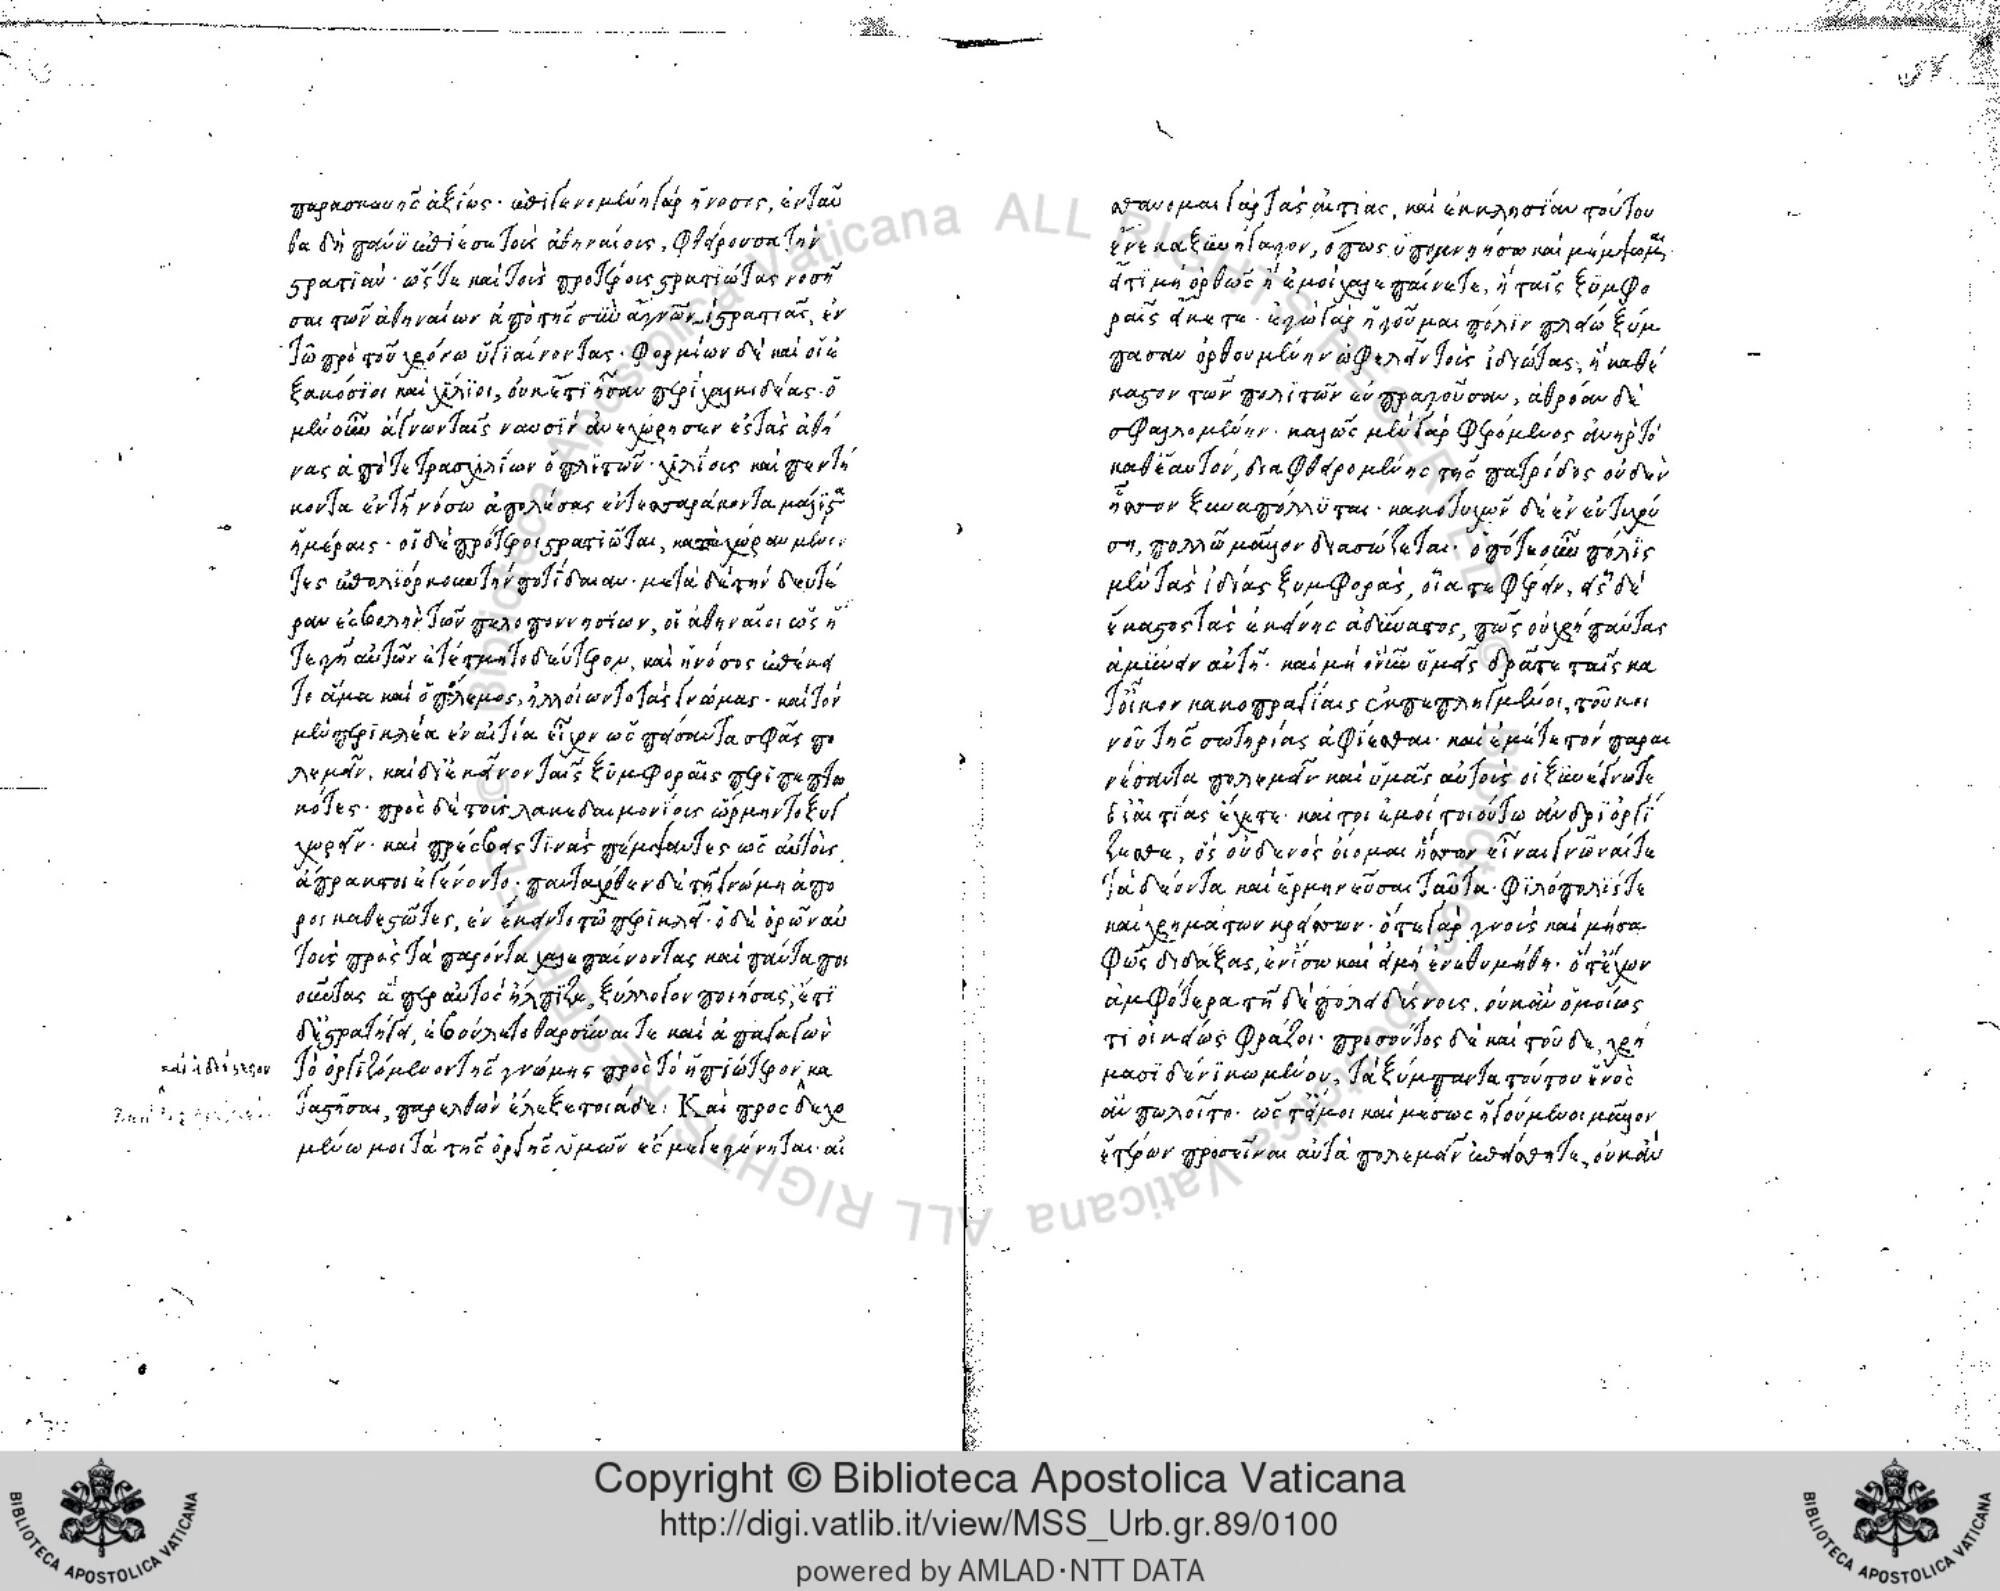 παρασκευῆς ἀξίως· ἐπιγενομένη γὰρ ἡ νόσος, ἐνταῦ
θα δὴ πάνϋ ἐπίεσε τοὺς ἀθηναίους, φθείρουσα τὴν
στρατϊάν· ὥστε καὶ τοὺς προτέρους στρατϊώτας νοσῆ
σαι τῶν ἀθηναίων ἀπὸ τῆς σὺν ἅγνωνι στρατιᾶς, ἐν
τῶ πρὸ τοῦ χρόνω ὑγϊαίνοντας· φορμίων δὲ καὶ οἱ ἑ
ξακόσϊοι καὶ χίλϊοι, οὐκέτι ἦσαν περὶ χαλκιδέας· ὁ
μὲν οὖν ἅγνων ταῖς ναυσὶν ἀνεχώρησεν ἐς τὰς ἀθή
νας ἀπὸ τετρασχιλίων ὁπλϊτῶν· χιλΐους καὶ πεντή
κοντα ἐν τῆ νόσω ἀπολέσας ἐν τεσσαράκοντα μάλϊστα
ἡμέραις· οἱ δὲ πρότεροι στρατιῶται, κατὰ χώραν μένον
τες ἐπολιόρκουν τὴν ποτίδαιαν· μετὰ δὲ τὴν δευτέ
ραν ἐσβολὴν τῶν πελοποννησίων, οἱ ἀθηναῖοι ὡς ἥ
τε γῆ αὐτῶν ἐτέτμητο δεύτερον, καὶ ἡ νόσος ἐπέκει
το ἅμα καὶ ὁ πόλεμος, ἠλλοίωντο τὰς γνώμας· καὶ τὸν
μὲν περικλέα ἐν αἰτία εἶχον ὡς πείσαντα σφᾶς πο
λεμεῖν, καὶ δϊ' ἐκεῖνον ταῖς ξυμφοραῖς περιπεπτω
κότες· πρὸς δὲ τοὺς λακεδαιμονίους ὥρμηντο ξυγ
χωρεῖν· καὶ πρέσβεις τινὰς πέμψαντες ὡς αὐτοὺς
ἄπρακτοι ἐγένοντο· πανταχόθεν δὲ τῆ γνώμη ἄπο
ροι καθεστῶτες, ἐν έκειντο τῶ περικλεῖ· ὁ δὲ ὁρῶν αὐ
τοὺς πρὸς τὰ παρόντα χαλεπαίνοντας καὶ πάντα ποι
οῦντας ἅπερ αὐτὸς ἤλπϊζε, ξύλλογον ποιήσας, ἔτϊ
δ' ἐστρατήγει, ἐβούλετο θαρσῦναί τε καὶ ἀπαγαγὼν
τὸ ὀργιζόμενον τῆς γνώμης πρὸς τὸ ἠπιώτερον κα
ταστῆσαι, παρελθὼν ἔλεξε τοιάδε: Καὶ προσδεχο
μένω μοι τὰ τῆς ὀργῆς ὑμῶν ἔς με γεγένηται· αἰ
καὶ ἀδεέστερον
σθάνομαι γὰρ τὰς αἰτίας, καὶ ἐκκλησίαν τούτου
ἕνεκα ξυνήγαγον, ὅπως ὑπομνήσω καὶ μέμψωμαι
εἴ τϊ μὴ ὀρθῶς ἢ ἐμοὶ χαλεπαίνετε, ἢ ταῖς ξϋμφο
ραῖς εἴκετε· ἐγὼ γὰρ ἡγοῦμαι πόλϊν πλείω ξύμ
πασαν ὀρθουμένην ὠφελεῖν τοὺς ἰδιώτας, ἢ καθέ
καστον τῶν πολϊτῶν εὐπραγοῦσαν, ἀθρόαν δὲ
σφαλλομένην· καλῶς μὲν γὰρ φερόμενος ἀνὴρ τὸ
καθ' ἑαυτὸν, διαφθειρομένης τῆς πατρίδος οὐδὲν
ἧσσον ξυναπόλλϋται· κακοτυχῶν δὲ ἐν εὐτυχού
ση, πολλῶ μᾶλλον διασώζεται· ὁπότε οὖν πόλϊς
μὲν τὰς ἰδίας ξυμφορὰς, οἵα τε φέρειν, εἷς δὲ
ἕκαστος τὰς ἐκείνης ἀδύνατος, πῶς οὐ χρὴ πάντας
ἀμύνειν αὐτῆ· καὶ μὴ ὃ νῦν ὑμεῖς δρᾶτε ταῖς κα
τοἶκον κακοπραγίαις ἐκπεπληγμένοι, τοῦ κοι
νοῦ τῆς σωτηρίας ἀφίεσθαι· καὶ ἐμέ τε τὸν παραι
νέσαντα πολεμεῖν καὶ ὑμᾶς αὐτοὺς οἳ ξυνέγνωτε
δι' αἰτίας ἔχετε· καί τοι ἐμοὶ τοιούτω ἀνδρὶ ὀργί
ζεσθε, ὃς οὐδενὸς οἴομαι ἥσσων εἶναι γνῶναί τε
τὰ δέοντα καὶ ἑρμηνεῦσαι ταῦτα· φϊλόπολίς τε
καὶ χρημάτων κρείσσων· ὅ τε γὰρ γνοὺς καὶ μὴ σα
φῶς διδάξας, ἐν ἴσω καὶ εἰ μὴ ἐνεθυμήθη· ὅ τ' ἔχων
ἀμφότερα τῆ δὲ πόλει δύσνους, οὐκ ἂν ὁμοίως
τι οἰκείως φράζοι· προσόντος δὲ καὶ τοῦδε, χρή
μασϊ δὲ νϊκωμένου, τὰ ξύμπαντα τούτου ἑνὸς
ἂν πωλοῖτο· ὥς τ' εἴ μοι καὶ μέσως ἡγούμενοι μᾶλλον
ἑτέρων προσεῖναι αὐτὰ πολεμεῖν ἐπείσθητε, οὐκ ἂν
Copyright © Biblioteca Apostolica Vaticana
http://digi.vatlib.it/view/MSS_Urb.gr.89/0100
powered by AMLAD·NTT DATA
BIBLIOTECA APOSTOLICA VATICANA
BIBLIOTECA APOSTOLICA VATICANA
© Biblioteca Apostolica Vaticana ALL RIGHTS RESERVED
© Biblioteca Apostolica Vaticana ALL RIGHTS RESERVED